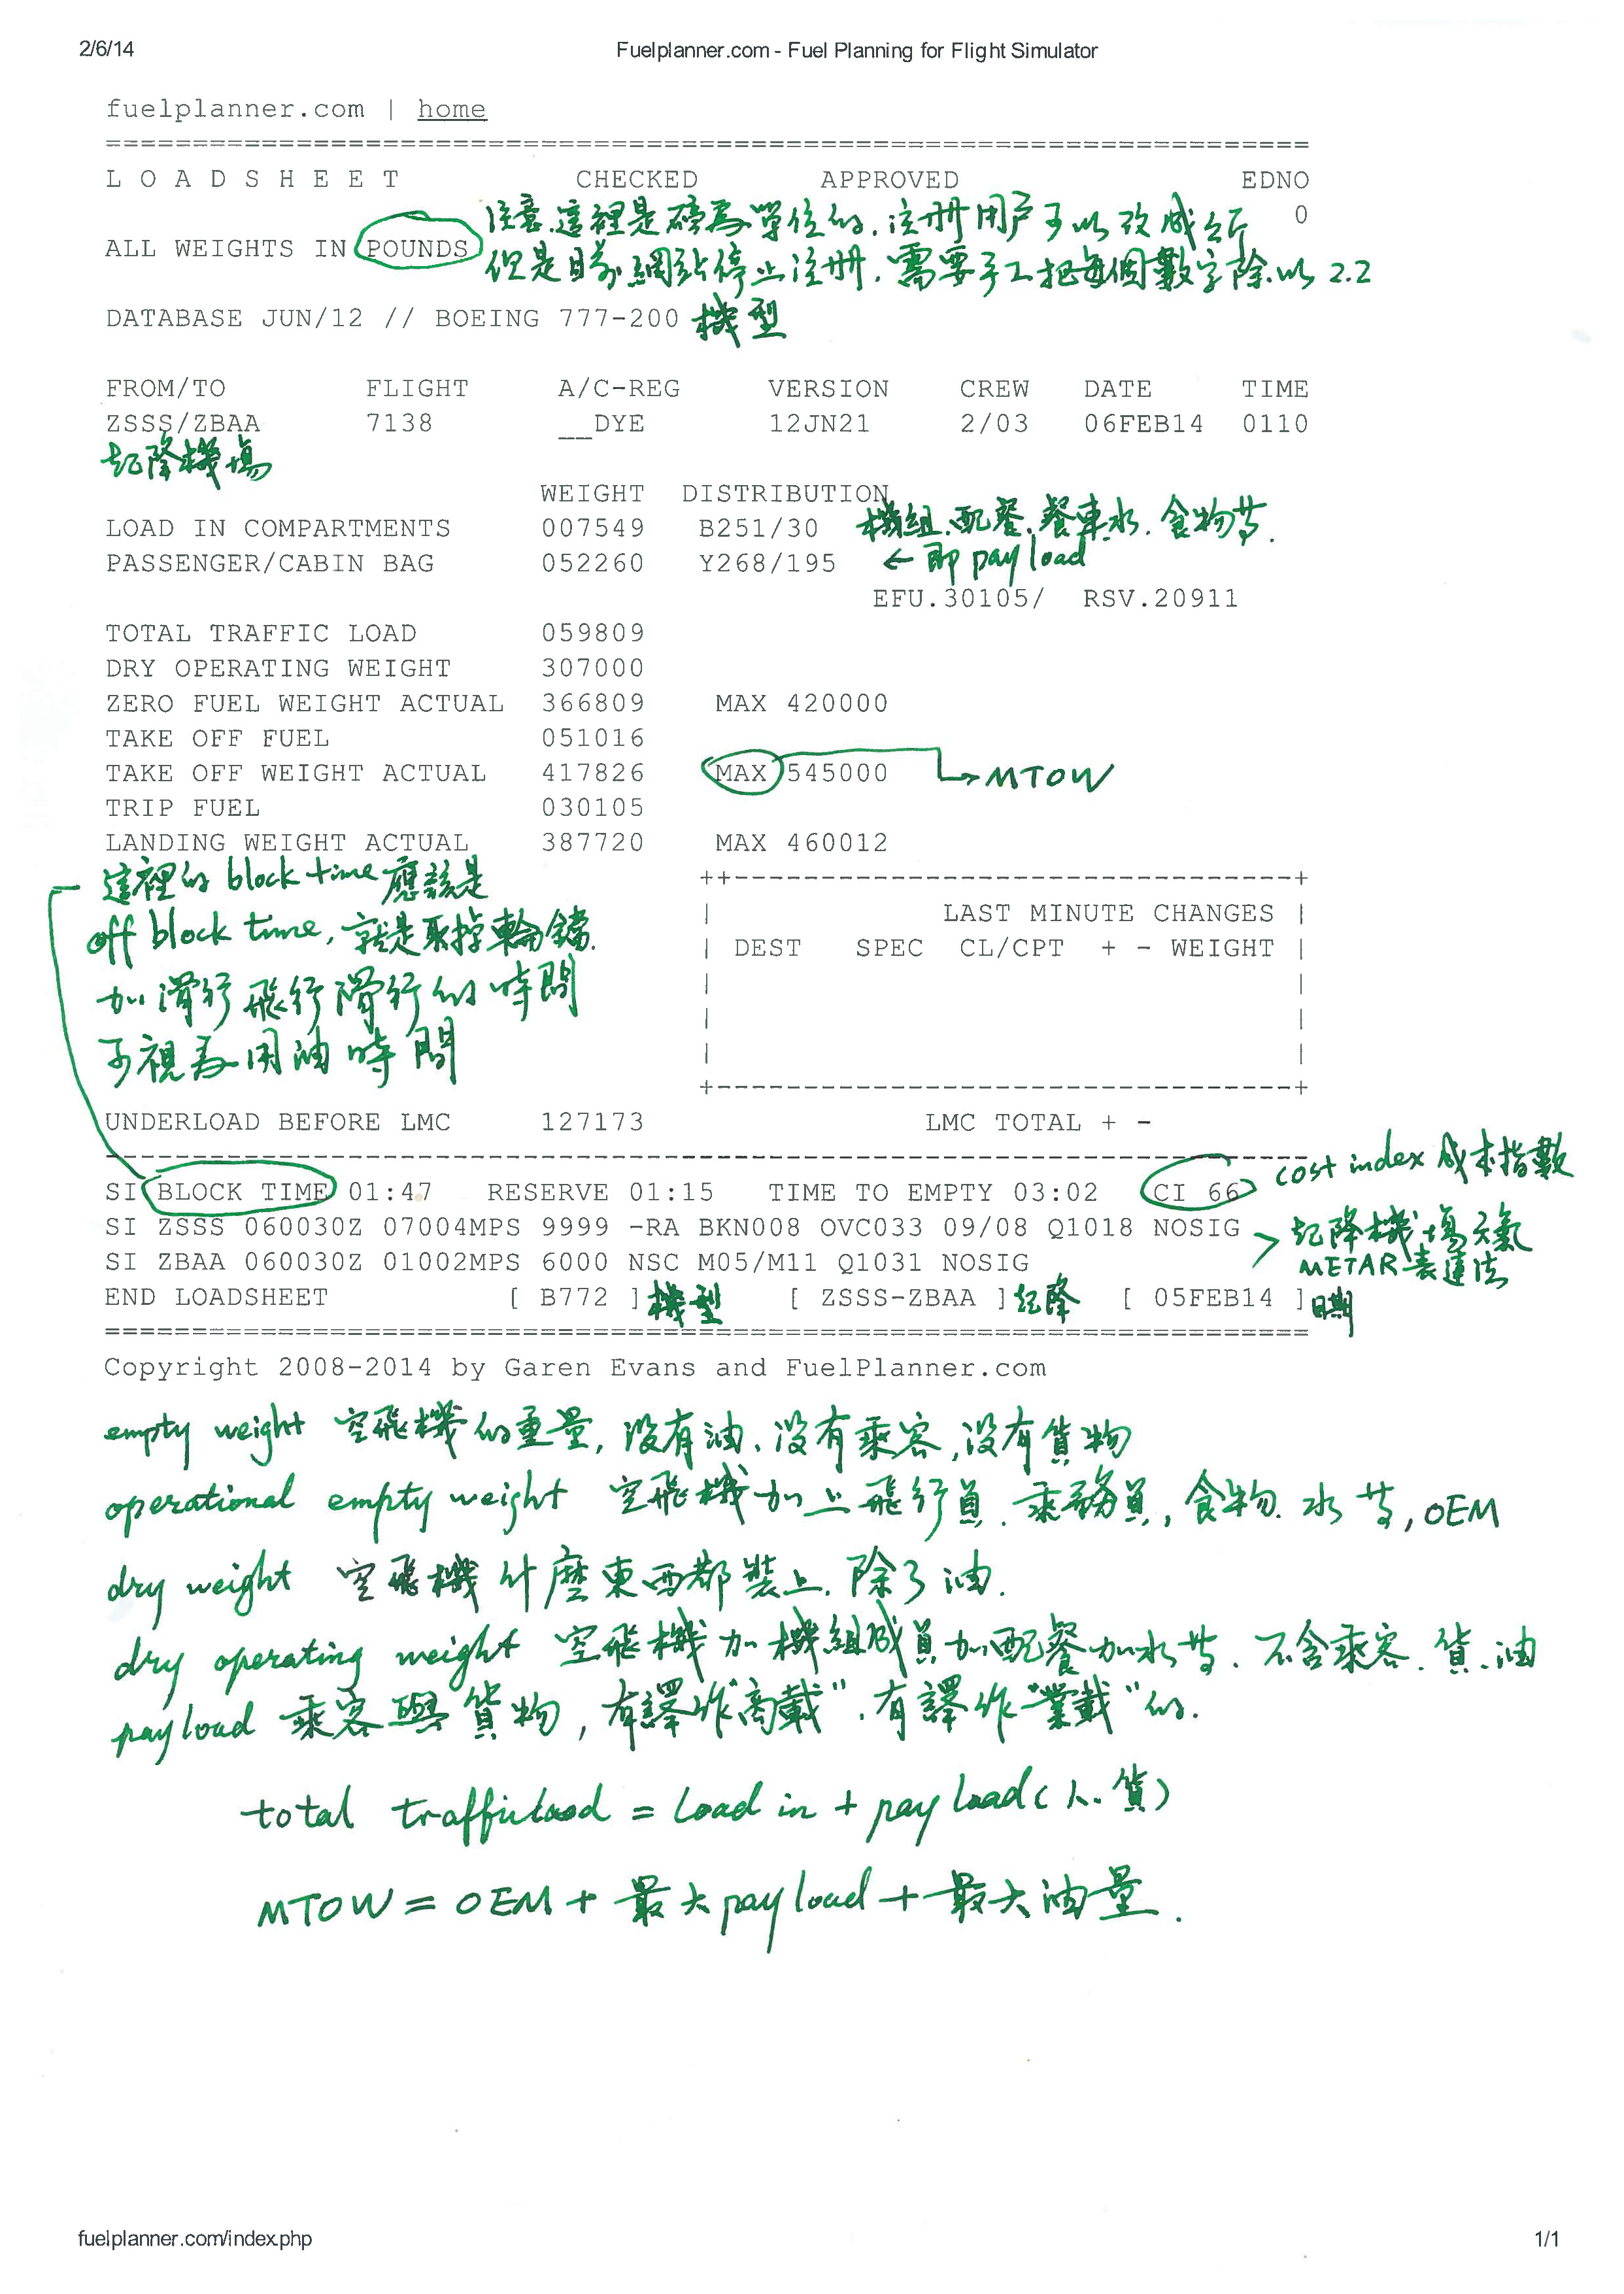 2/6/14 Fuelplanner.com - Fuel Planning for Flight Simulator
fuelplanner.com | home
=====================================================================
L O A D S H E E T CHECKED APPROVED EDNO
注意.這裡是磅為單位的.注册用户可以改成公斤 0
ALL WEIGHTS IN POUNDS 但是目前網站停止注册.需要手工把每個數字除以2.2
DATABASE JUN/12 // BOEING 777-200 機型
FROM/TO FLIGHT A/C-REG VERSION CREW DATE TIME
ZSSS/ZBAA 7138 __DYE 12JN21 2/03 06FEB14 0110
起降機場
WEIGHT DISTRIBUTION
LOAD IN COMPARTMENTS 007549 B251/30 機組.配餐.餐車水.食物等.
PASSENGER/CABIN BAG 052260 Y268/195 ← 即 payload
EFU.30105/ RSV.20911
TOTAL TRAFFIC LOAD 059809
DRY OPERATING WEIGHT 307000
ZERO FUEL WEIGHT ACTUAL 366809 MAX 420000
TAKE OFF FUEL 051016
TAKE OFF WEIGHT ACTUAL 417826 MAX 545000 → MTOW
TRIP FUEL 030105
LANDING WEIGHT ACTUAL 387720 MAX 460012
這裡的 block time 應該是
off block time, 就是取掉輪擋.
加滑行飛行滑行的時間
可視為用油時間
++--------------------------------+
| LAST MINUTE CHANGES |
| DEST SPEC CL/CPT + - WEIGHT |
| |
| |
| |
+---------------------------------+
UNDERLOAD BEFORE LMC 127173 LMC TOTAL + -
---------------------------------------------------------------------
SI BLOCK TIME 01:47 RESERVE 01:15 TIME TO EMPTY 03:02 CI 66 cost index 成本指數
SI ZSSS 060030Z 07004MPS 9999 -RA BKN008 OVC033 09/08 Q1018 NOSIG 起降機場天氣
SI ZBAA 060030Z 01002MPS 6000 NSC M05/M11 Q1031 NOSIG METAR表達法
END LOADSHEET [ B772 ] 機型 [ ZSSS-ZBAA ] 起降 [ 05FEB14 ] 日期
=====================================================================
Copyright 2008-2014 by Garen Evans and FuelPlanner.com
empty weight 空飛機的重量, 没有油、没有乘客,没有貨物
operational empty weight 空飛機加上飛行員.乘務員,食物.水等, OEM
dry weight 空飛機什麼東西都裝上.除了油.
dry operating weight 空飛機加機組成員加配餐加水等.不含乘客.貨.油
payload 乘客與貨物, 有譯作"商載".有譯作"業載"的.
total trafficload = load in + payload(人.貨)
MTOW = OEM + 最大payload + 最大油量.
fuelplanner.com/index.php 1/1